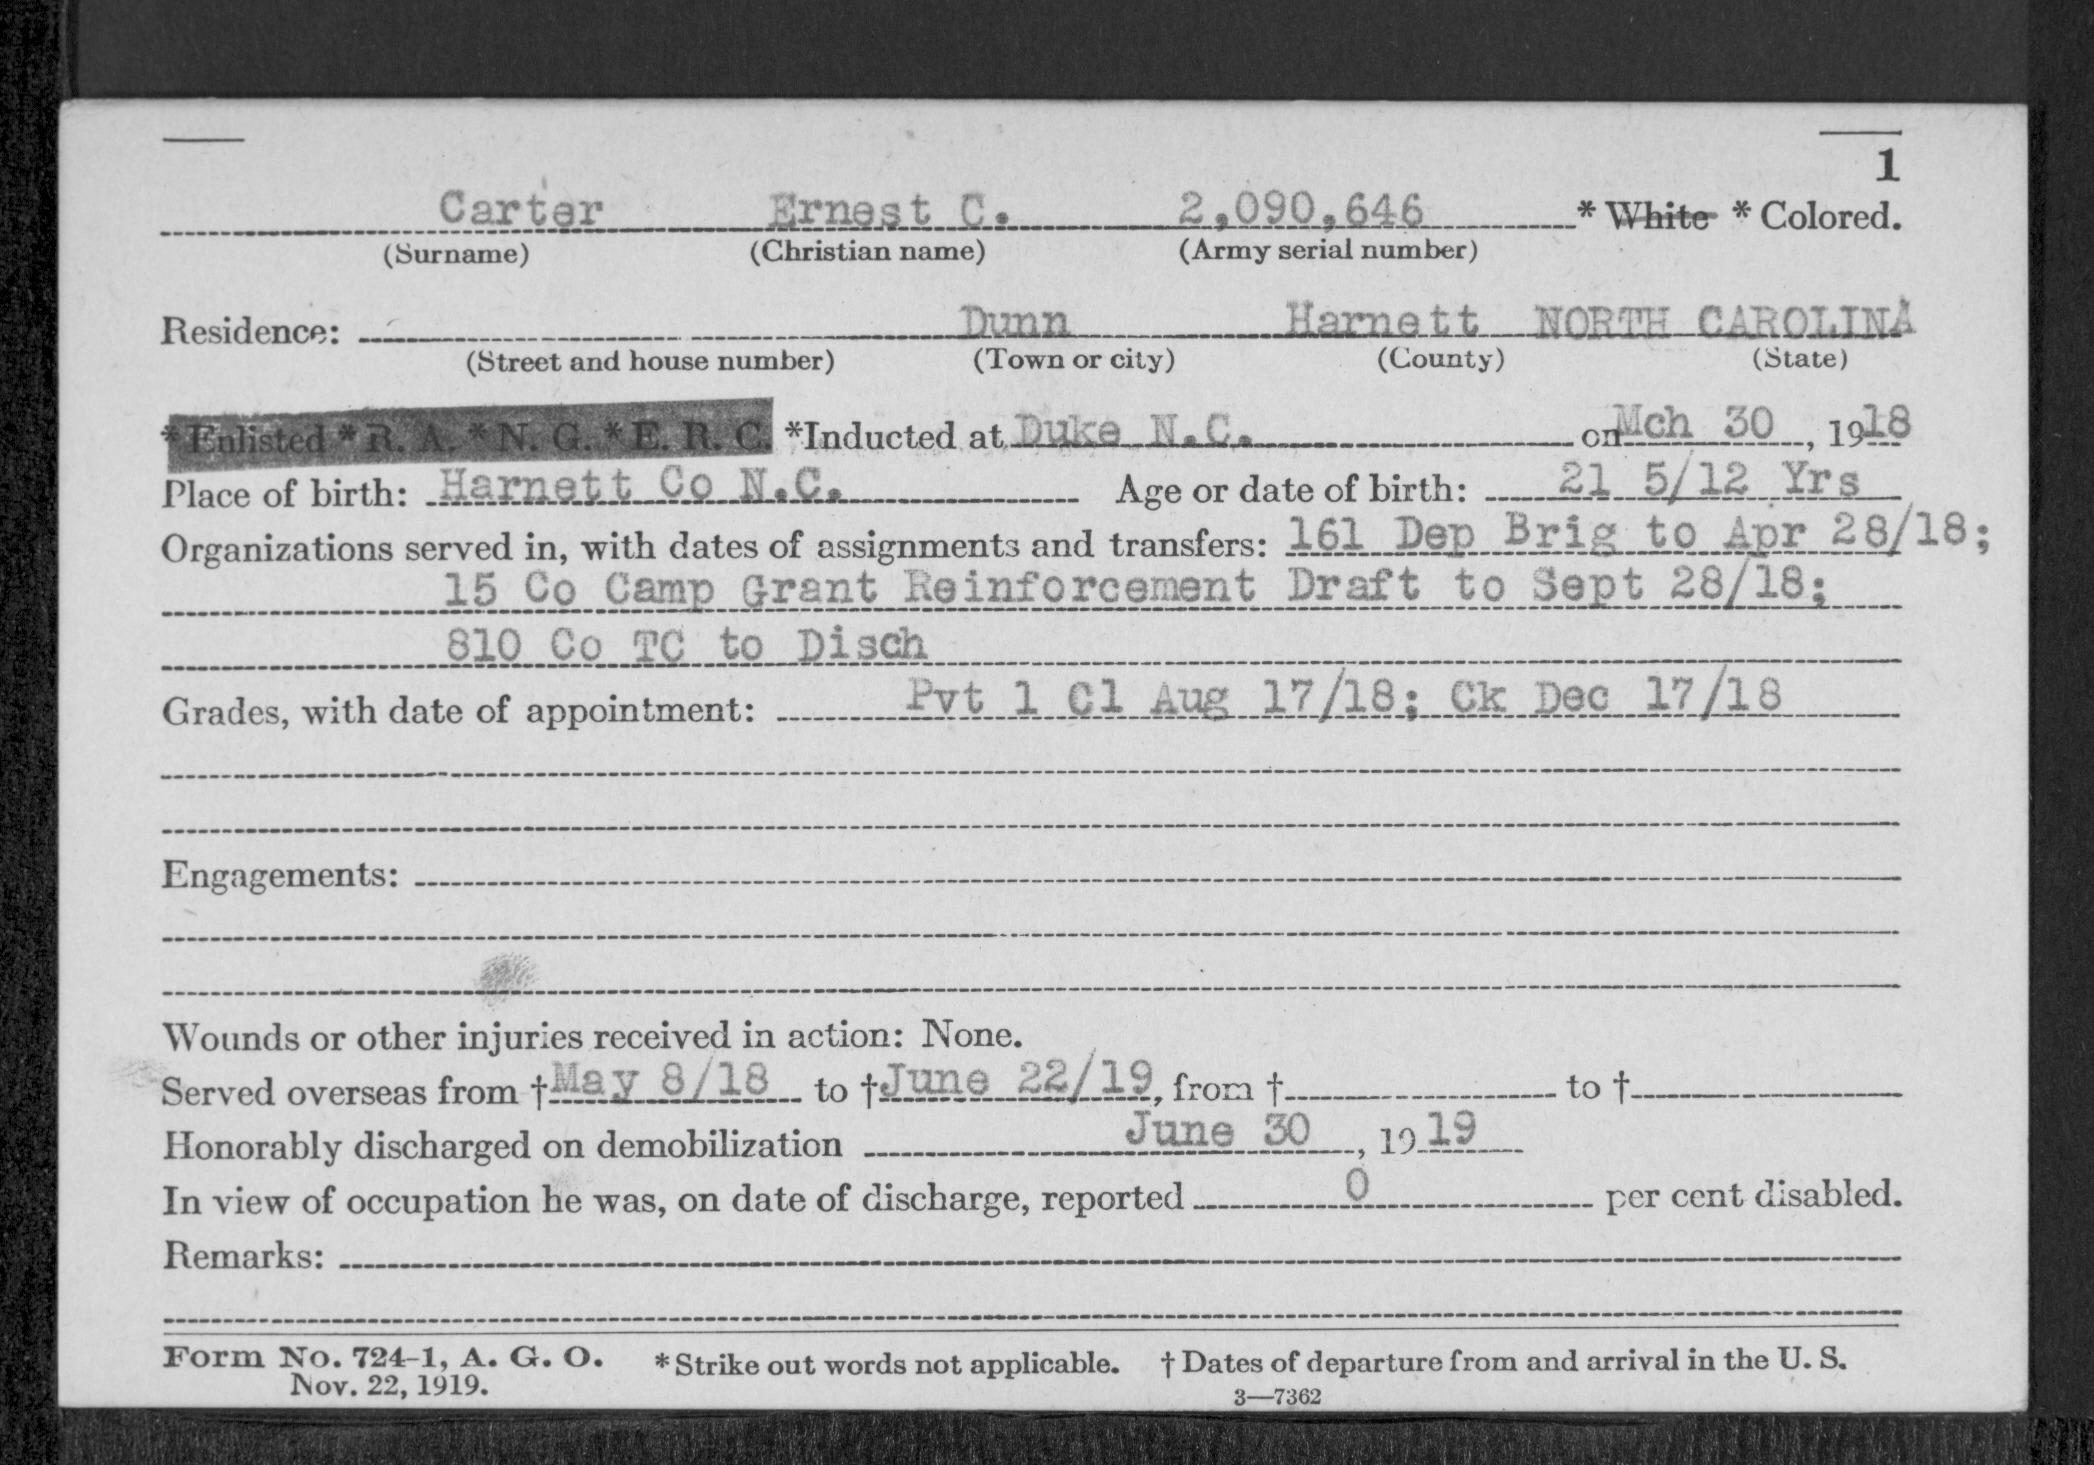 1
Carter Ernest C. 2,090,646 * White * Colored.
(Surname) (Christian name) (Army serial number)
Residence: Dunn Harnett NORTH CAROLINA
(Street and house number) (Town or city) (County) (State)
*Enlisted *R. A. *N. G. *E. R. C. *Inducted at Duke N.C. on Mch 30, 1918
Place of birth: Harnett Co N.C. Age or date of birth: 21 5/12 Yrs
Organizations served in, with dates of assignments and transfers: 161 Dep Brig to Apr 28/18;
15 Co Camp Grant Reinforcement Draft to Sept 28/18;
810 Co TC to Disch
Grades, with date of appointment: Pvt 1 Cl Aug 17/18; Ck Dec 17/18
Engagements:
Wounds or other injuries received in action: None.
Served overseas from †May 8/18 to †June 22/19, from † to †
Honorably discharged on demobilization June 30, 1919
In view of occupation he was, on date of discharge, reported 0 per cent disabled.
Remarks:
Form No. 724-1, A. G. O. *Strike out words not applicable. †Dates of departure from and arrival in the U. S.
Nov. 22, 1919. 3—7362